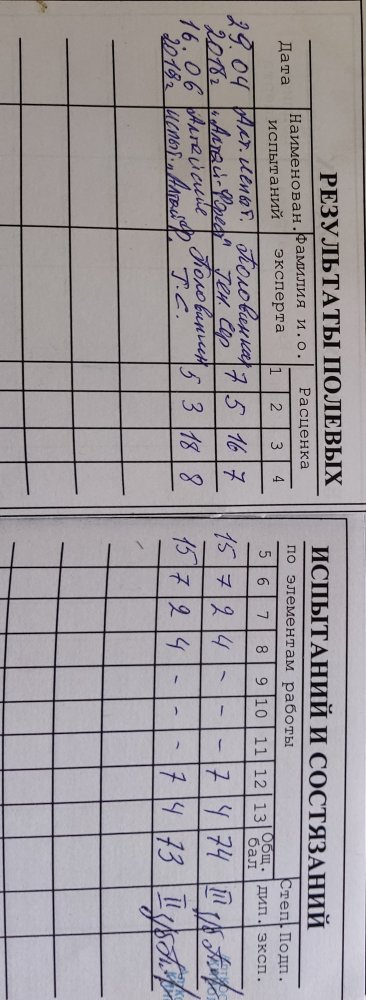 РЕЗУЛЬТАТЫ ПОЛЕВЫХ ИСПЫТАНИЙ И СОСТЯЗАНИЙ
Дата Наименован. испытаний Фамилия и.о. эксперта Расценка по элементам работы Общ. бал Степ. дип. Подп. эксп.
1 2 3 4 5 6 7 8 9 10 11 12 13
29.04 Алт. испыт. Половинкин 7 5 16 7 15 7 2 4 - - - 7 4 74 III
2018г "Алтай- Ген. Сер
16.06 Алтайские Половинкин 5 3 18 8 15 7 2 4 - - - 7 4 73 II
2019г испыт. "Алтай Г.С.